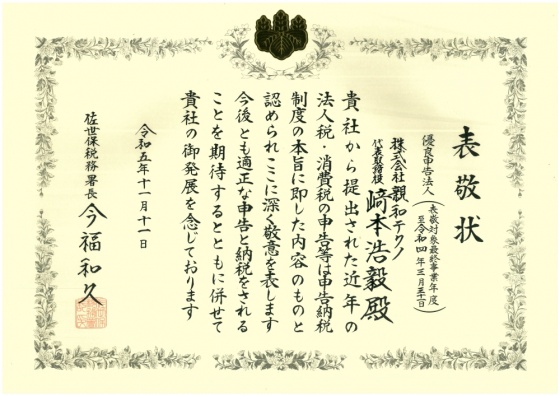 表敬状
優良申告法人(表敬対象最終事業年度
至令和四年三月三十一日)
株式会社親和テクノ
代表取締役 﨑本浩毅殿
貴社から提出された近年の
法人税・消費税の申告等は申告納税
制度の本旨に即した内容のものと
認められここに深く敬意を表します
今後とも適正な申告と納税をされる
ことを期待するとともに併せて
貴社の御発展を念じております
令和五年十一月十一日
佐世保税務署長 今福和久